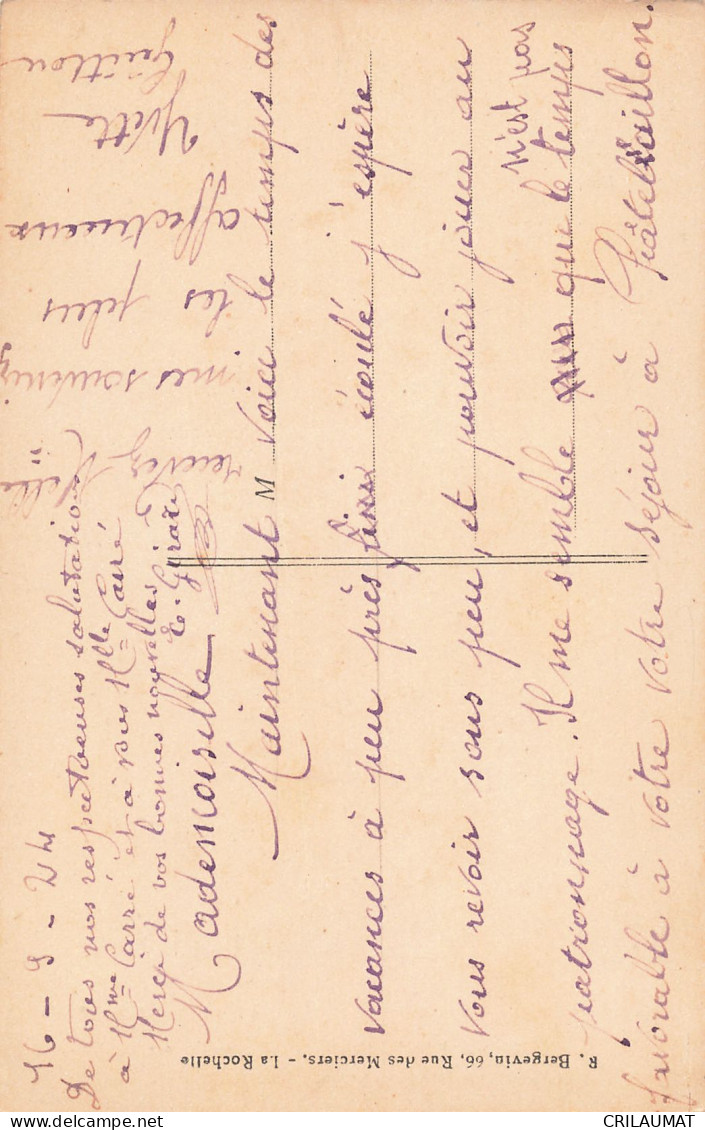 16 - 9 - 24
De tous nos respectueuses salutations
à Mme Carré et à vos Mlle Carré
Merci de vos bonnes nouvelles
E. Girard
Mademoiselle
Maintenant voici le temps des
vacances à peu près fini écoulé j'espère
vous revoir sous peu, et pouvoir jouer au
patronnage. Il me semble que le temps
n'est pas
favorable à votre votre séjour à Châtelaillon.
Recevez Melle
mes souvenirs
les plus
affectueux
Yvette
Guitton
M
F. Bergevin, 66, Rue des Merciers. - La Rochelle
delcampe.net
CRILAUMAT